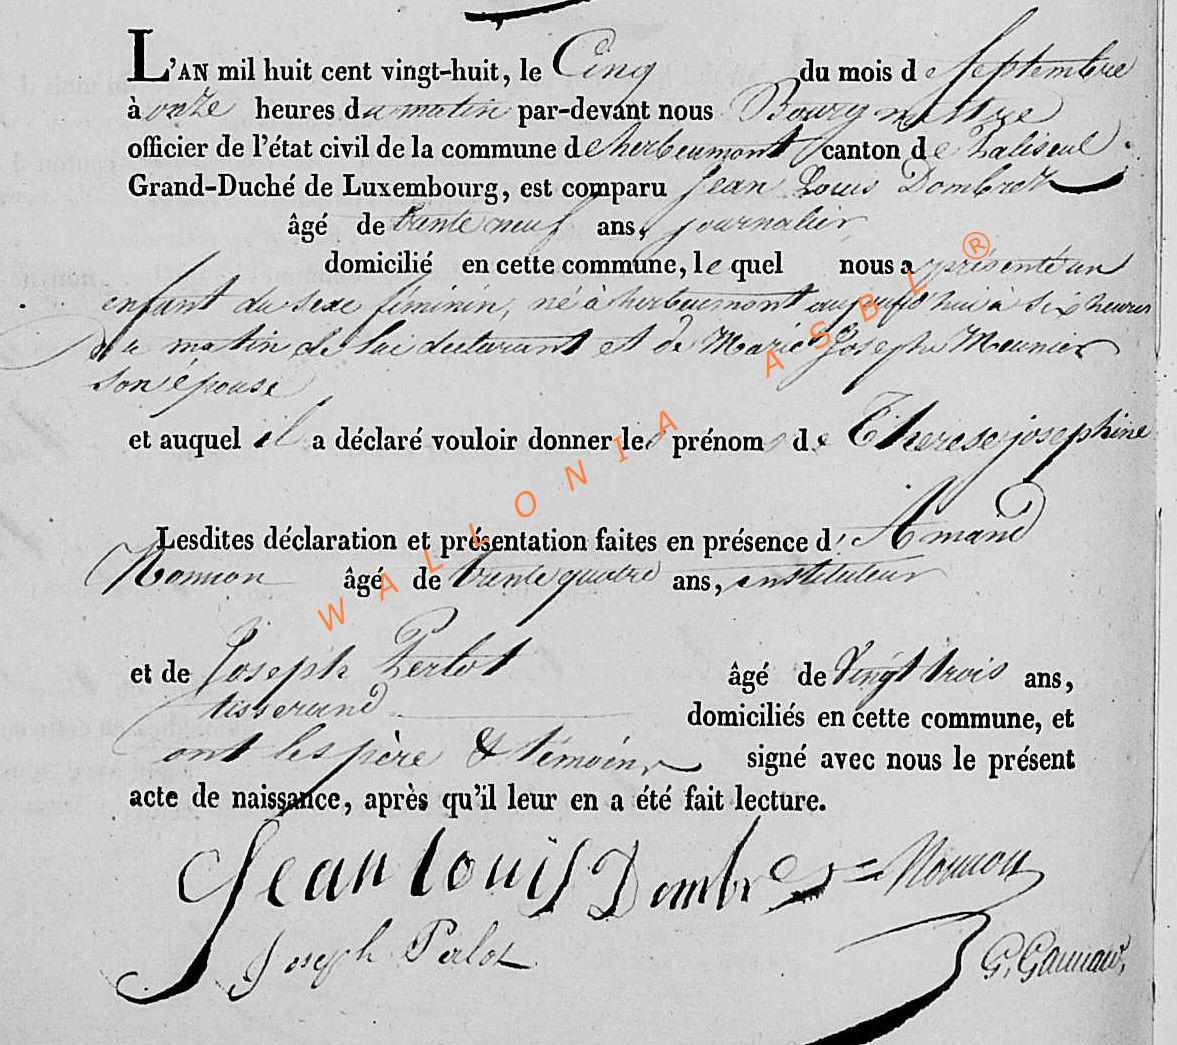 L'AN mil huit cent vingt-huit, le Cinq du mois de Septembre
à onze heures du matin par-devant nous Bourgmettre
officier de l'état civil de la commune de herbeumont canton de paliseul
Grand-Duché de Luxembourg, est comparu Jean Louis Dombret
âgé de trente neuf ans, journalier
domicilié en cette commune, le quel nous a présenté un
enfant du sexe féminin, né à herbeumont aujourd'hui à six heures
du matin de lui déclarant et de Marie Joseph Meunier
son épouse
et auquel il a déclaré vouloir donner les prénoms de Therese josephine
Lesdites déclaration et présentation faites en présence d'Amand
âgé de trente quatre ans, instituteur
et de Joseph Perlot âgé de Vingt trois ans,
tisserand domiciliés en cette commune, et
ont les père & témoins signé avec nous le présent
acte de naissance, après qu'il leur en a été fait lecture.
Jean Louis Dombret
Joseph Perlot
WALLONIA ASBL ®